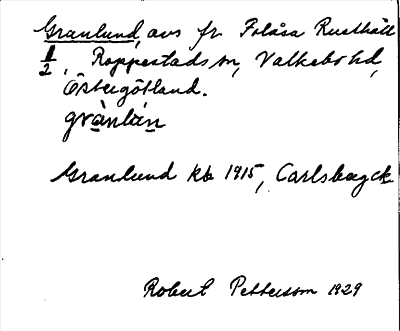 Granlund, avs fr Folåsa Rusthåll
1/2, Rappestads sn, Valkebo hd,
Östergötland.
grànlún
Granlund kb 1915, Carlsbæck
Robert Pettersson 1929